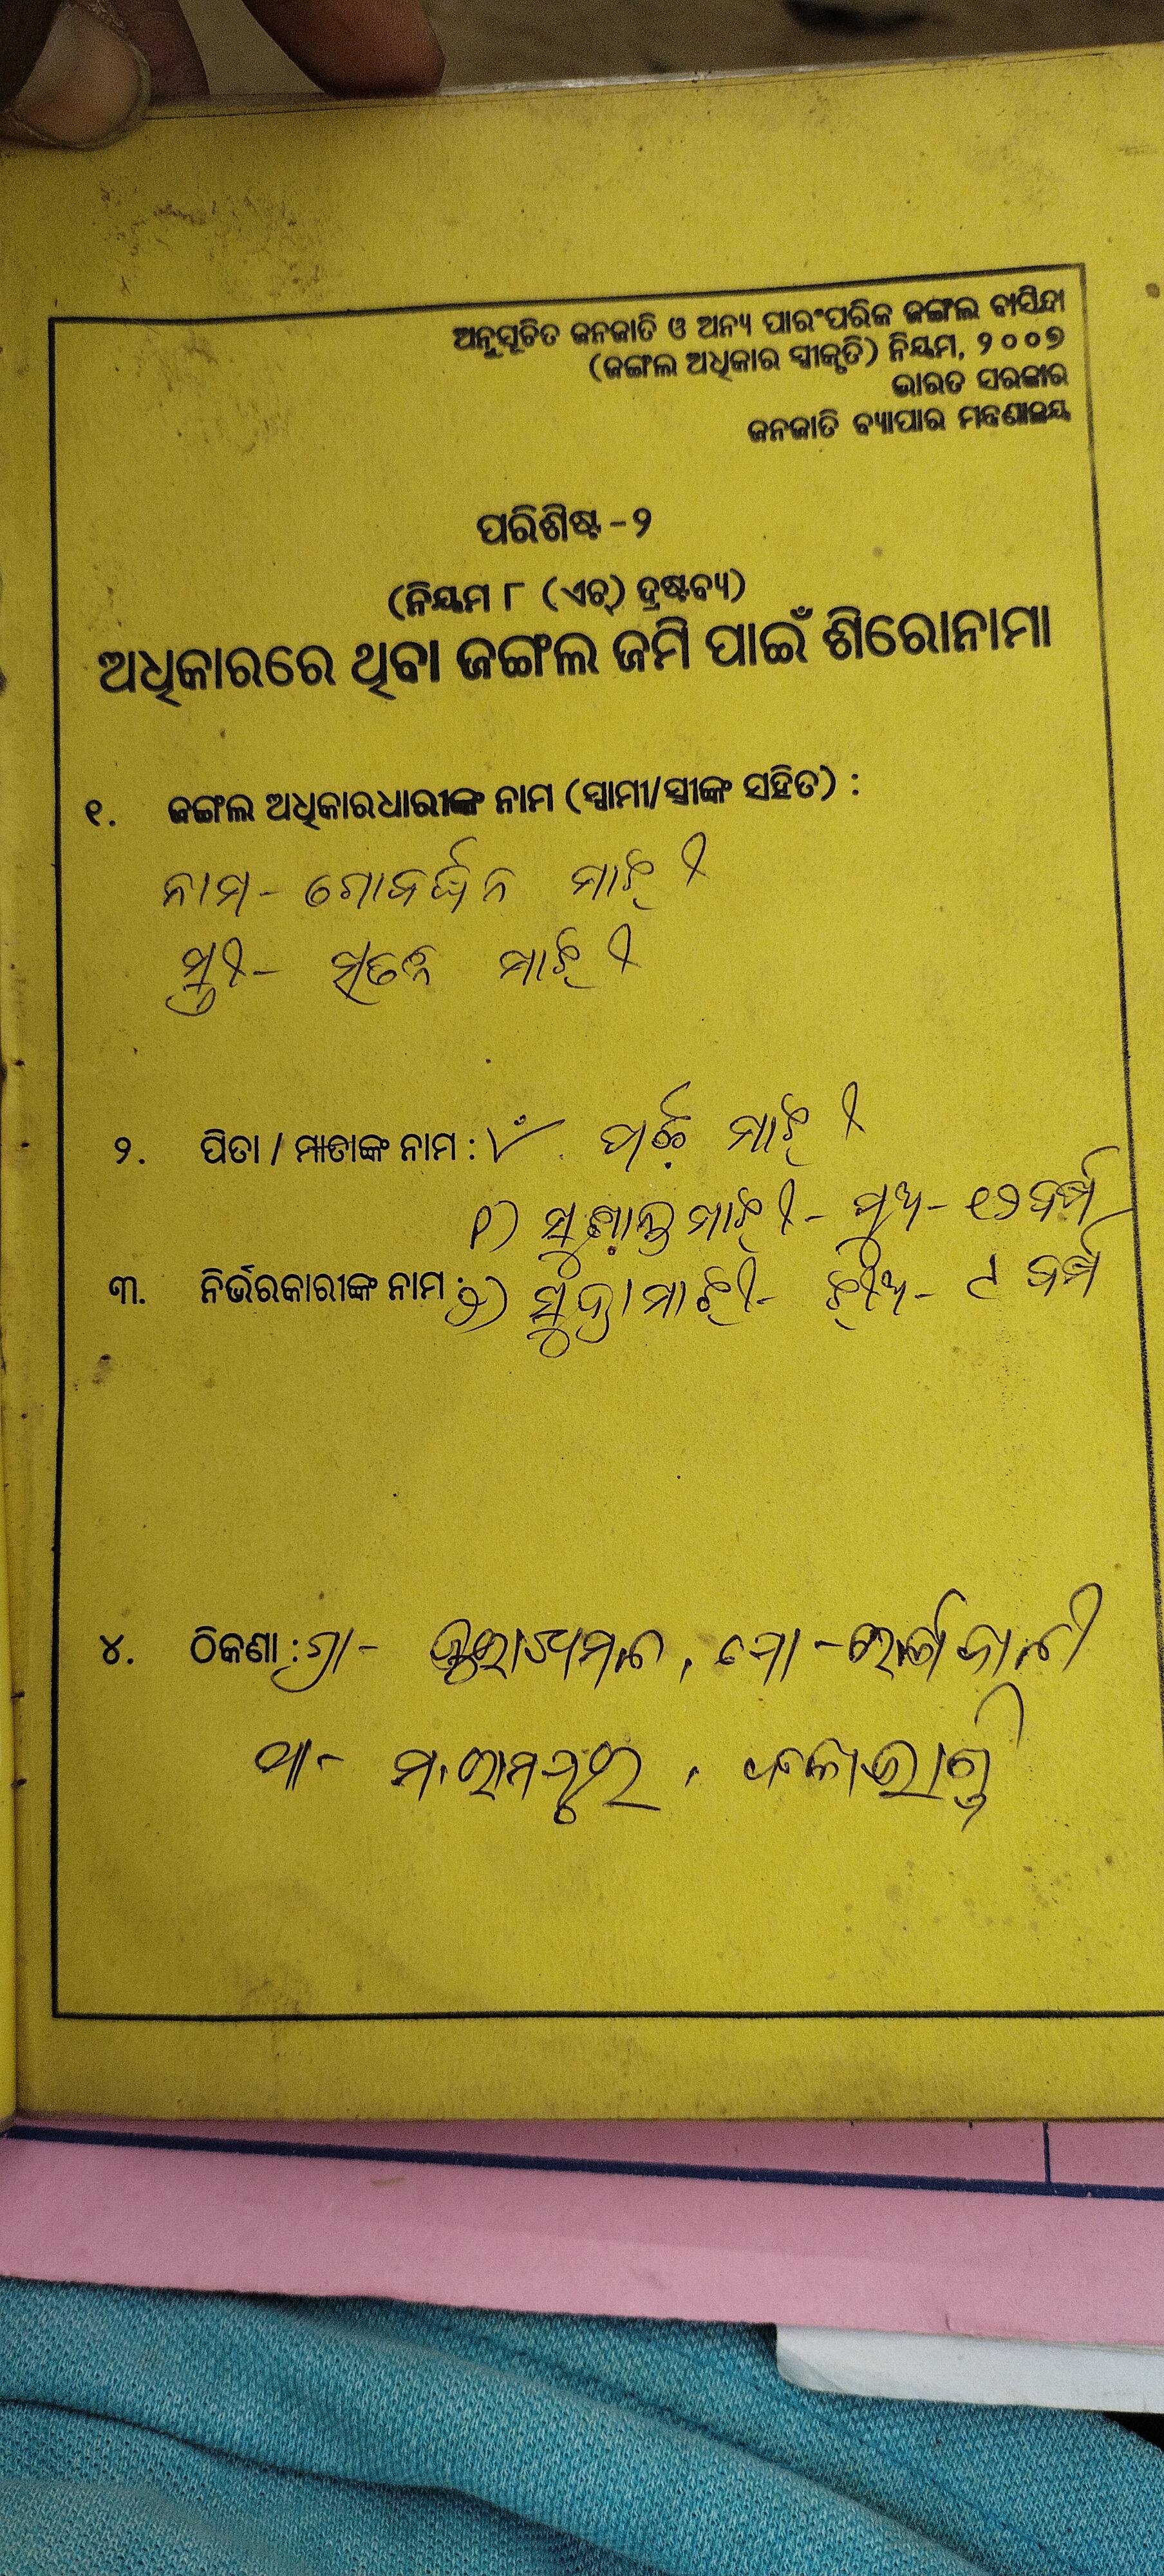 ଅନୁସୂଚିତ ଜନଜାତି ଓ ଅନ୍ୟ ପାରଂପରିକ ଜଙ୍ଗଲ ବାସିନ୍ଦା
(ଜଙ୍ଗଲ ଅଧିକାର ସ୍ୱୀକୃତି) ନିୟମ, ୨୦୦୭
ଭାରତ ସରକାର
ଜନଜାତି ବ୍ୟାପାର ମନ୍ତ୍ରଣାଳୟ
ପରିଶିଷ୍ଟ -୨
(ନିୟମ ୮ (ଏଚ୍) ଦ୍ରଷ୍ଟବ୍ୟ)
ଅଧିକାରରେ ଥିବା ଜଙ୍ଗଲ ଜମି ପାଇଁ ଶିରୋନାମା
୧. ଜଙ୍ଗଲ ଅଧିକାରଧାରୀଙ୍କ ନାମ (ସ୍ୱାମୀ/ସ୍ତ୍ରୀଙ୍କ ସହିତ) :
ନାମ- ଗୋବର୍ଦ୍ଧନ ମାଝୀ
ସ୍ତ୍ରୀ- ମାଝୀ
୨. ପିତା / ମାତାଙ୍କ ନାମ : ମାଝୀ
୧) ସୁଶାନ୍ତ ମାଝୀ - ପୁଅ - ୧୨ ବର୍ଷ
୩. ନିର୍ଭରକାରୀଙ୍କ ନାମ : ୨) ମାଝୀ - ଝିଅ - ୯ ବର୍ଷ
୪. ଠିକଣା : ଗ୍ରା -
ଥା - ମ. ରାମପୁର, କଳାହାଣ୍ଡି